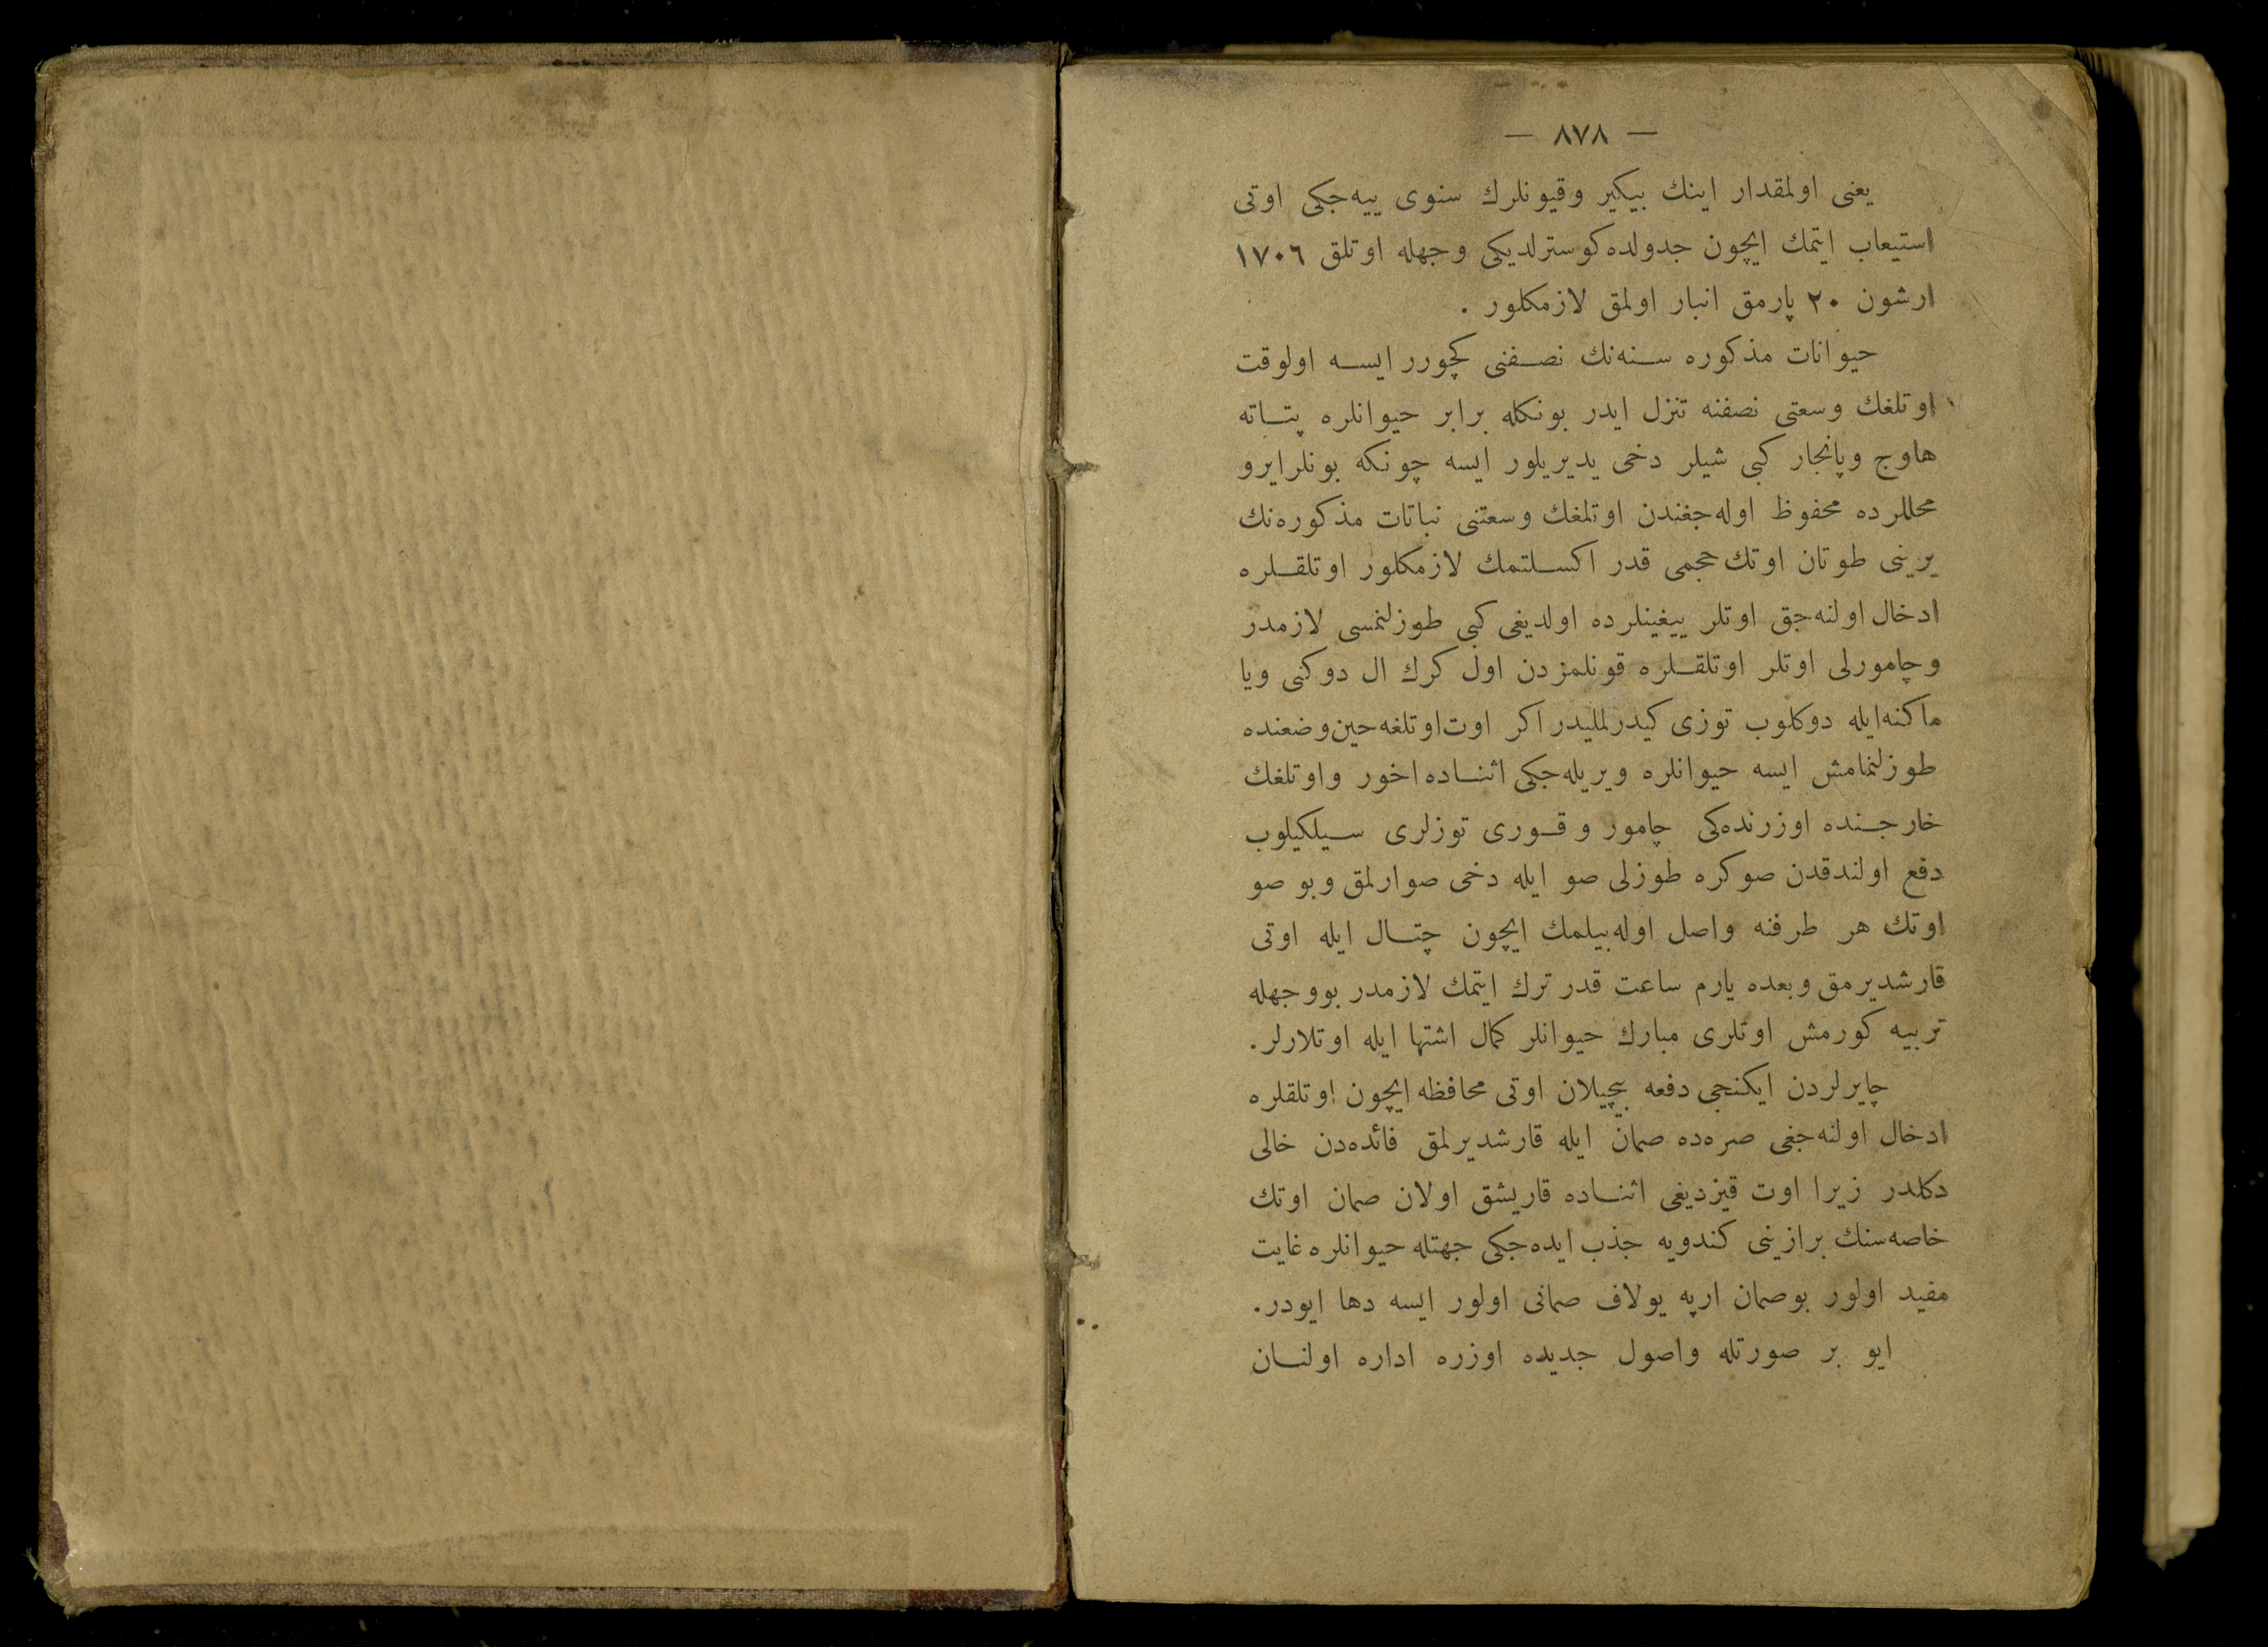 — ٨٧٨ —
يعنى اولمقدار اينك بيكير وقيونلرك سنوى ييه‌جكى اوتى
استيعاب ايتمك ايچون جدولده كوسترلديكى وجهله اوتلق ١٧٠٦
ارشون ٢٠ پارمق انبار اولمق لازمكلور .
حيوانات مذكوره سنه‌نك نصفنى كچورر ايسه اولوقت
اوتلغك وسعتى نصفنه تنزل ايدر بونكله برابر حيوانلره پتاته
هاوج وپانجار كبى شيلر دخى يديريلور ايسه چونكه بونلر ايرو
محللرده محفوظ اوله‌جغندن اوتلمغك وسعتنى نباتات مذكوره‌نك
يرينى طوتان اوتك حجمى قدر اكسلتمك لازمكلور اوتلقلره
ادخال اولنه‌جق اوتلر ييغينلرده اولديغى كبى طوزلنمسى لازمدر
وچامورلى اوتلر اوتلقلره قونلمزدن اول كرك ال دوكنى ويا
ماكنه ايله دوكلوب توزى كيدرلمليدر اكر اوت اوتلغه حين وضعنده
طوزلنمامش ايسه حيوانلره ويريله‌جكى اثناده اخور واوتلغك
خارجنده اوزرنده‌كى چامور و قورى توزلرى سيلكيلوب
دفع اولندقدن صوكره طوزلى صو ايله دخى صوارلمق وبو صو
اوتك هر طرفنه واصل اوله‌بيلمك ايچون چتال ايله اوتى
قارشديرمق وبعده يارم ساعت قدر ترك ايتمك لازمدر بووجهله
تربيه كورمش اوتلرى مبارك حيوانلر كمال اشتها ايله اوتلارلر.
چايرلردن ايكنجى دفعه بيچيلان اوتى محافظه ايچون اوتلقلره
ادخال اولنه‌جغى صره‌ده صمان ايله قارشديرلمق فائده‌دن خالى
دكلدر زيرا اوت قيزديغى اثناده قاريشق اولان صمان اوتك
خاصه‌سنك برازينى كندويه جذب ايده‌جكى جهتله حيوانلره غايت
مفيد اولور بوصمان ارپه يولاف صمانى اولور ايسه دها ايودر.
ايو بر صورتله واصول جديده اوزره اداره اولنان